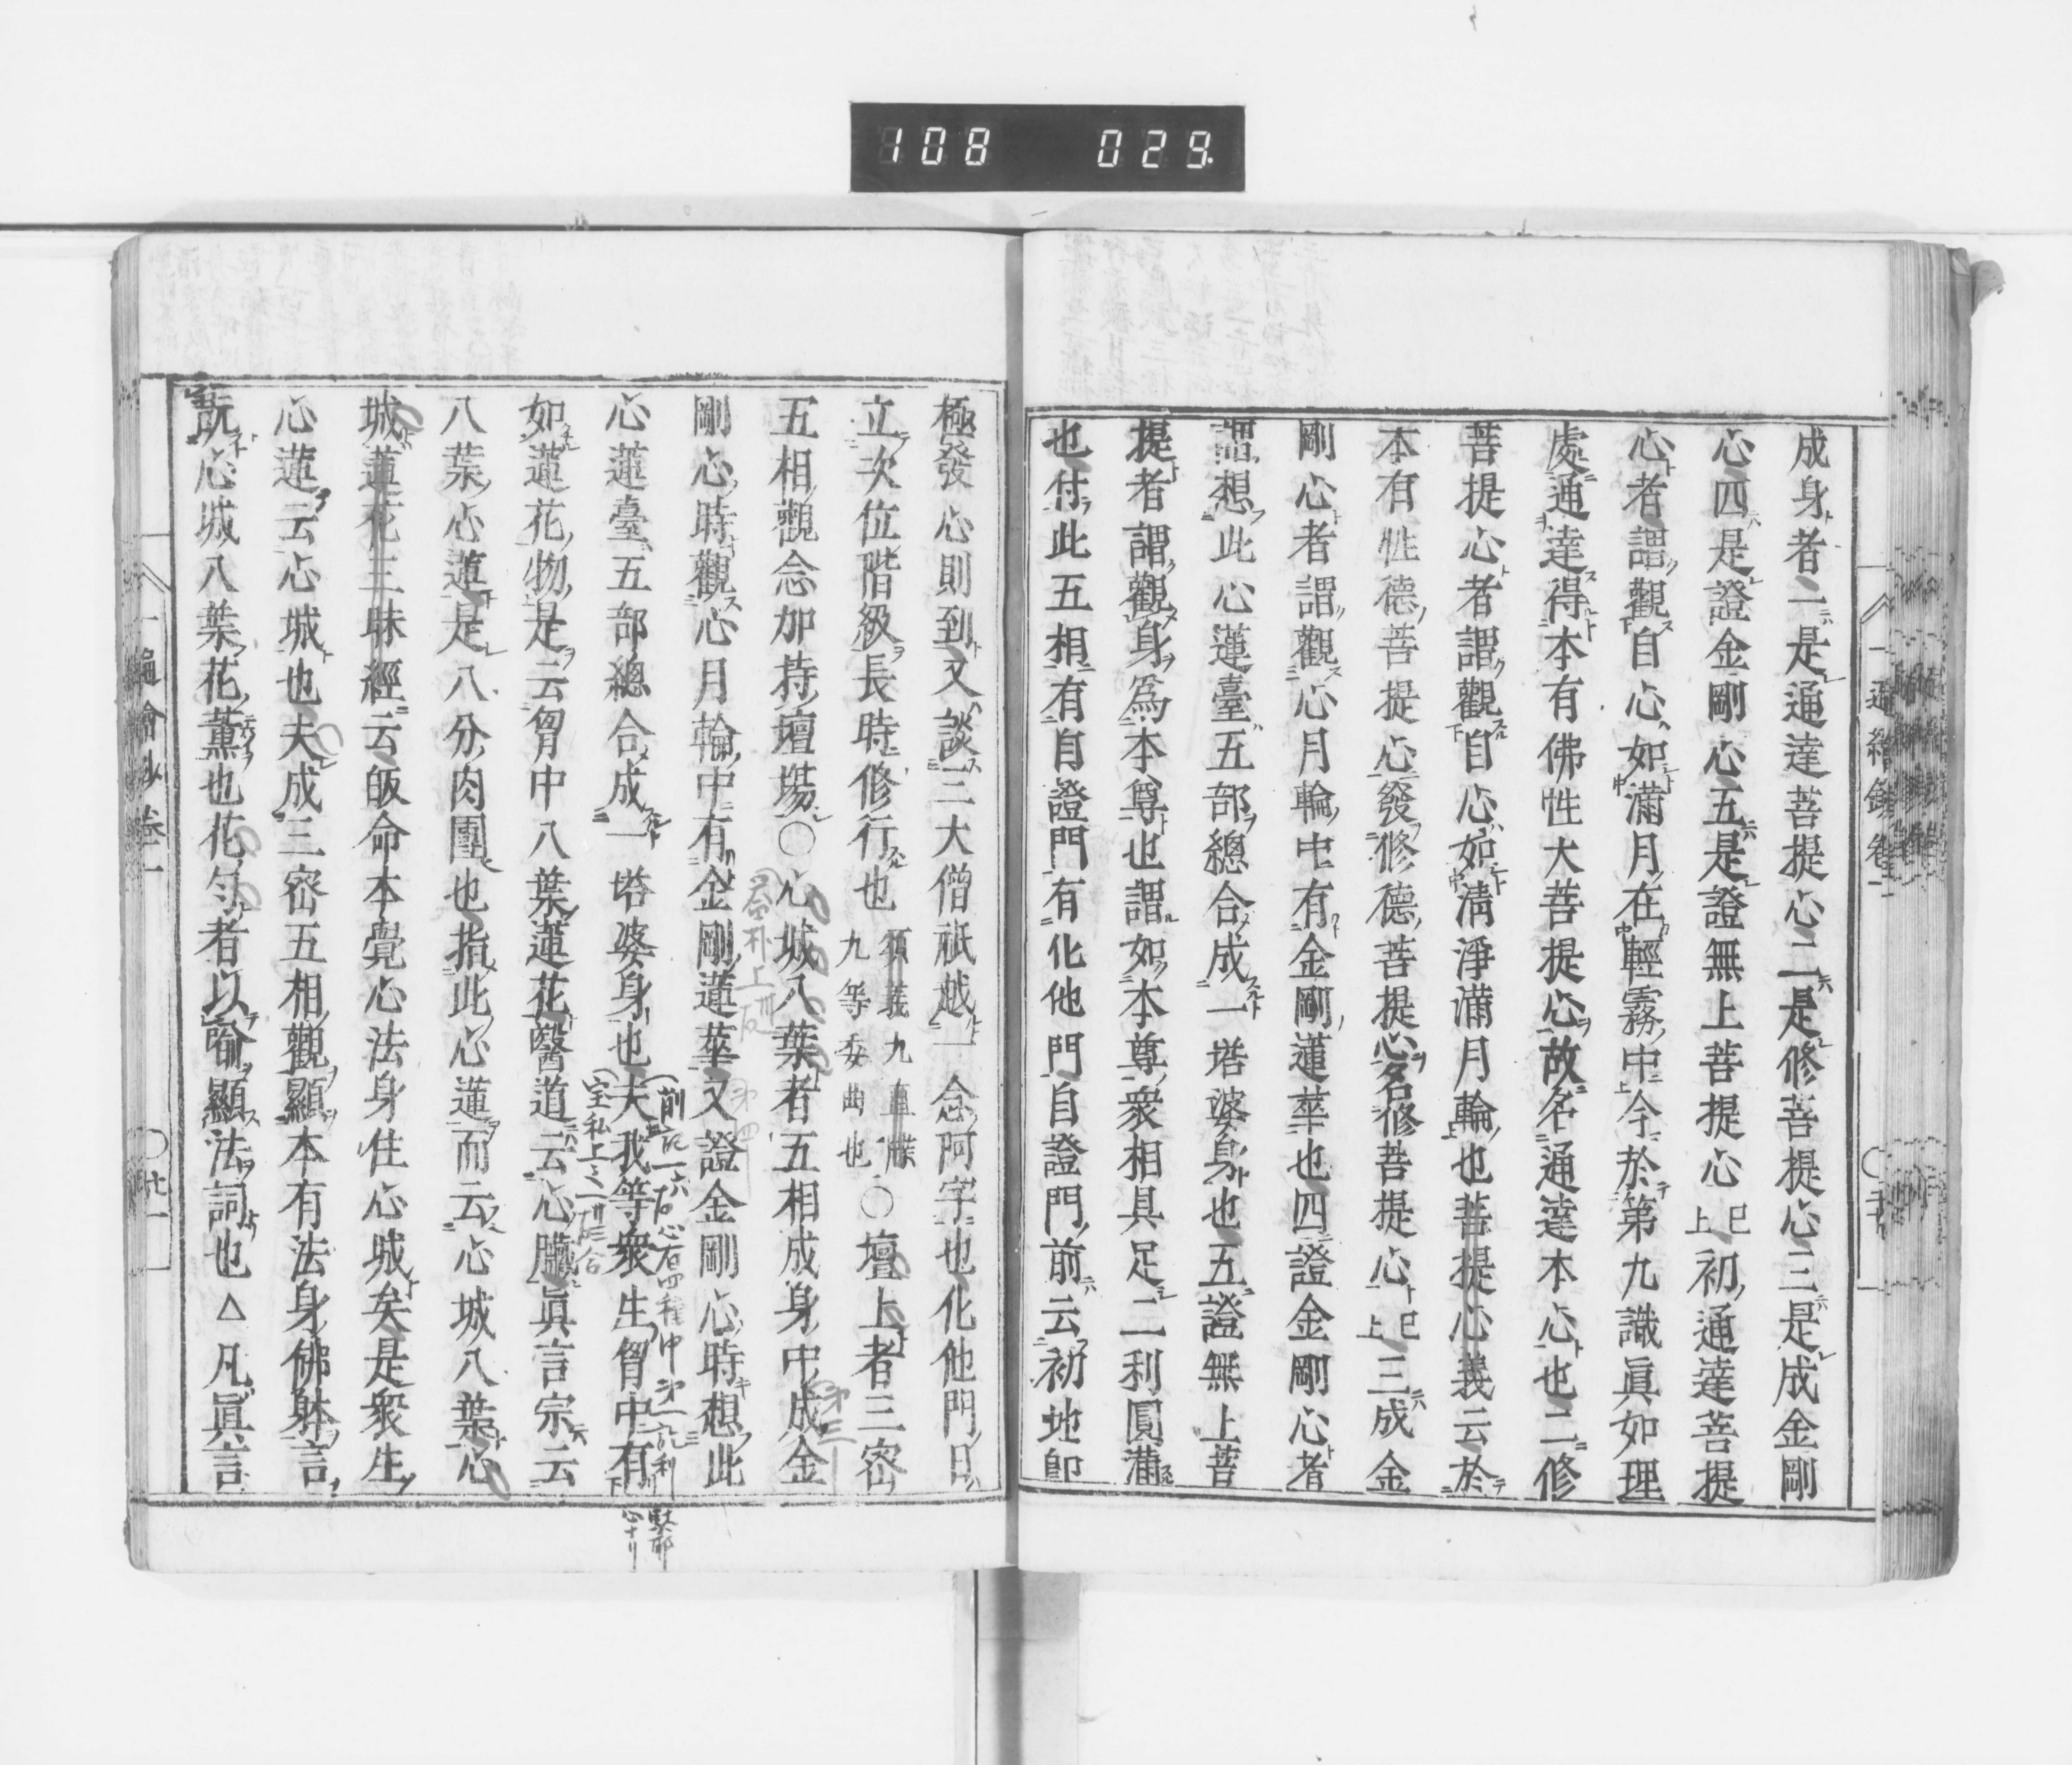 108 029
成身者一是通達菩提心二是修菩提心三是成金剛
心四是證金剛心五是證無上菩提心已上初通達菩提
心者謂觀自心如滿月在輕霧中今於第九識眞如理
處通達得本有佛性大菩提心故名通達本心也二修
菩提心者謂觀自心如淸淨滿月輪也菩提心義云於
本有性德菩提心發修德菩提心名修菩提心已上三成金
剛心者謂觀心月輪中有金剛蓮華也四證金剛心者
謂想此心蓮臺五部總合成一塔婆身也五證無上菩
提者謂觀身爲本尊也謂如本尊衆相具足二利圓滿
也付此五相有自證門有化他門自證門前云初地卽
極發心則到又談三大僧祇越一念阿字也化他門日
立次位階級長時修行也須義九直牒九等委曲也○壇上者三密
五相觀念加持壇場○心城八葉者五相成身中成金
剛心時觀心月輪中有金剛蓮華又證金剛心時想此
心蓮臺五部總合成一塔婆身也夫我等衆生胷中有
如蓮花物是云胷中八葉蓮花醫道云心臟眞言宗云
八葉心蓮是八分肉團也指此心蓮而云心城八葉心
城蓮花三昧經云皈命本覺心法身住心城矣是衆生
心蓮云心城也夫成三密五相觀顯本有法身佛躰言
旣心城八葉花薰也花匂者以喩顯法詞也△凡眞言